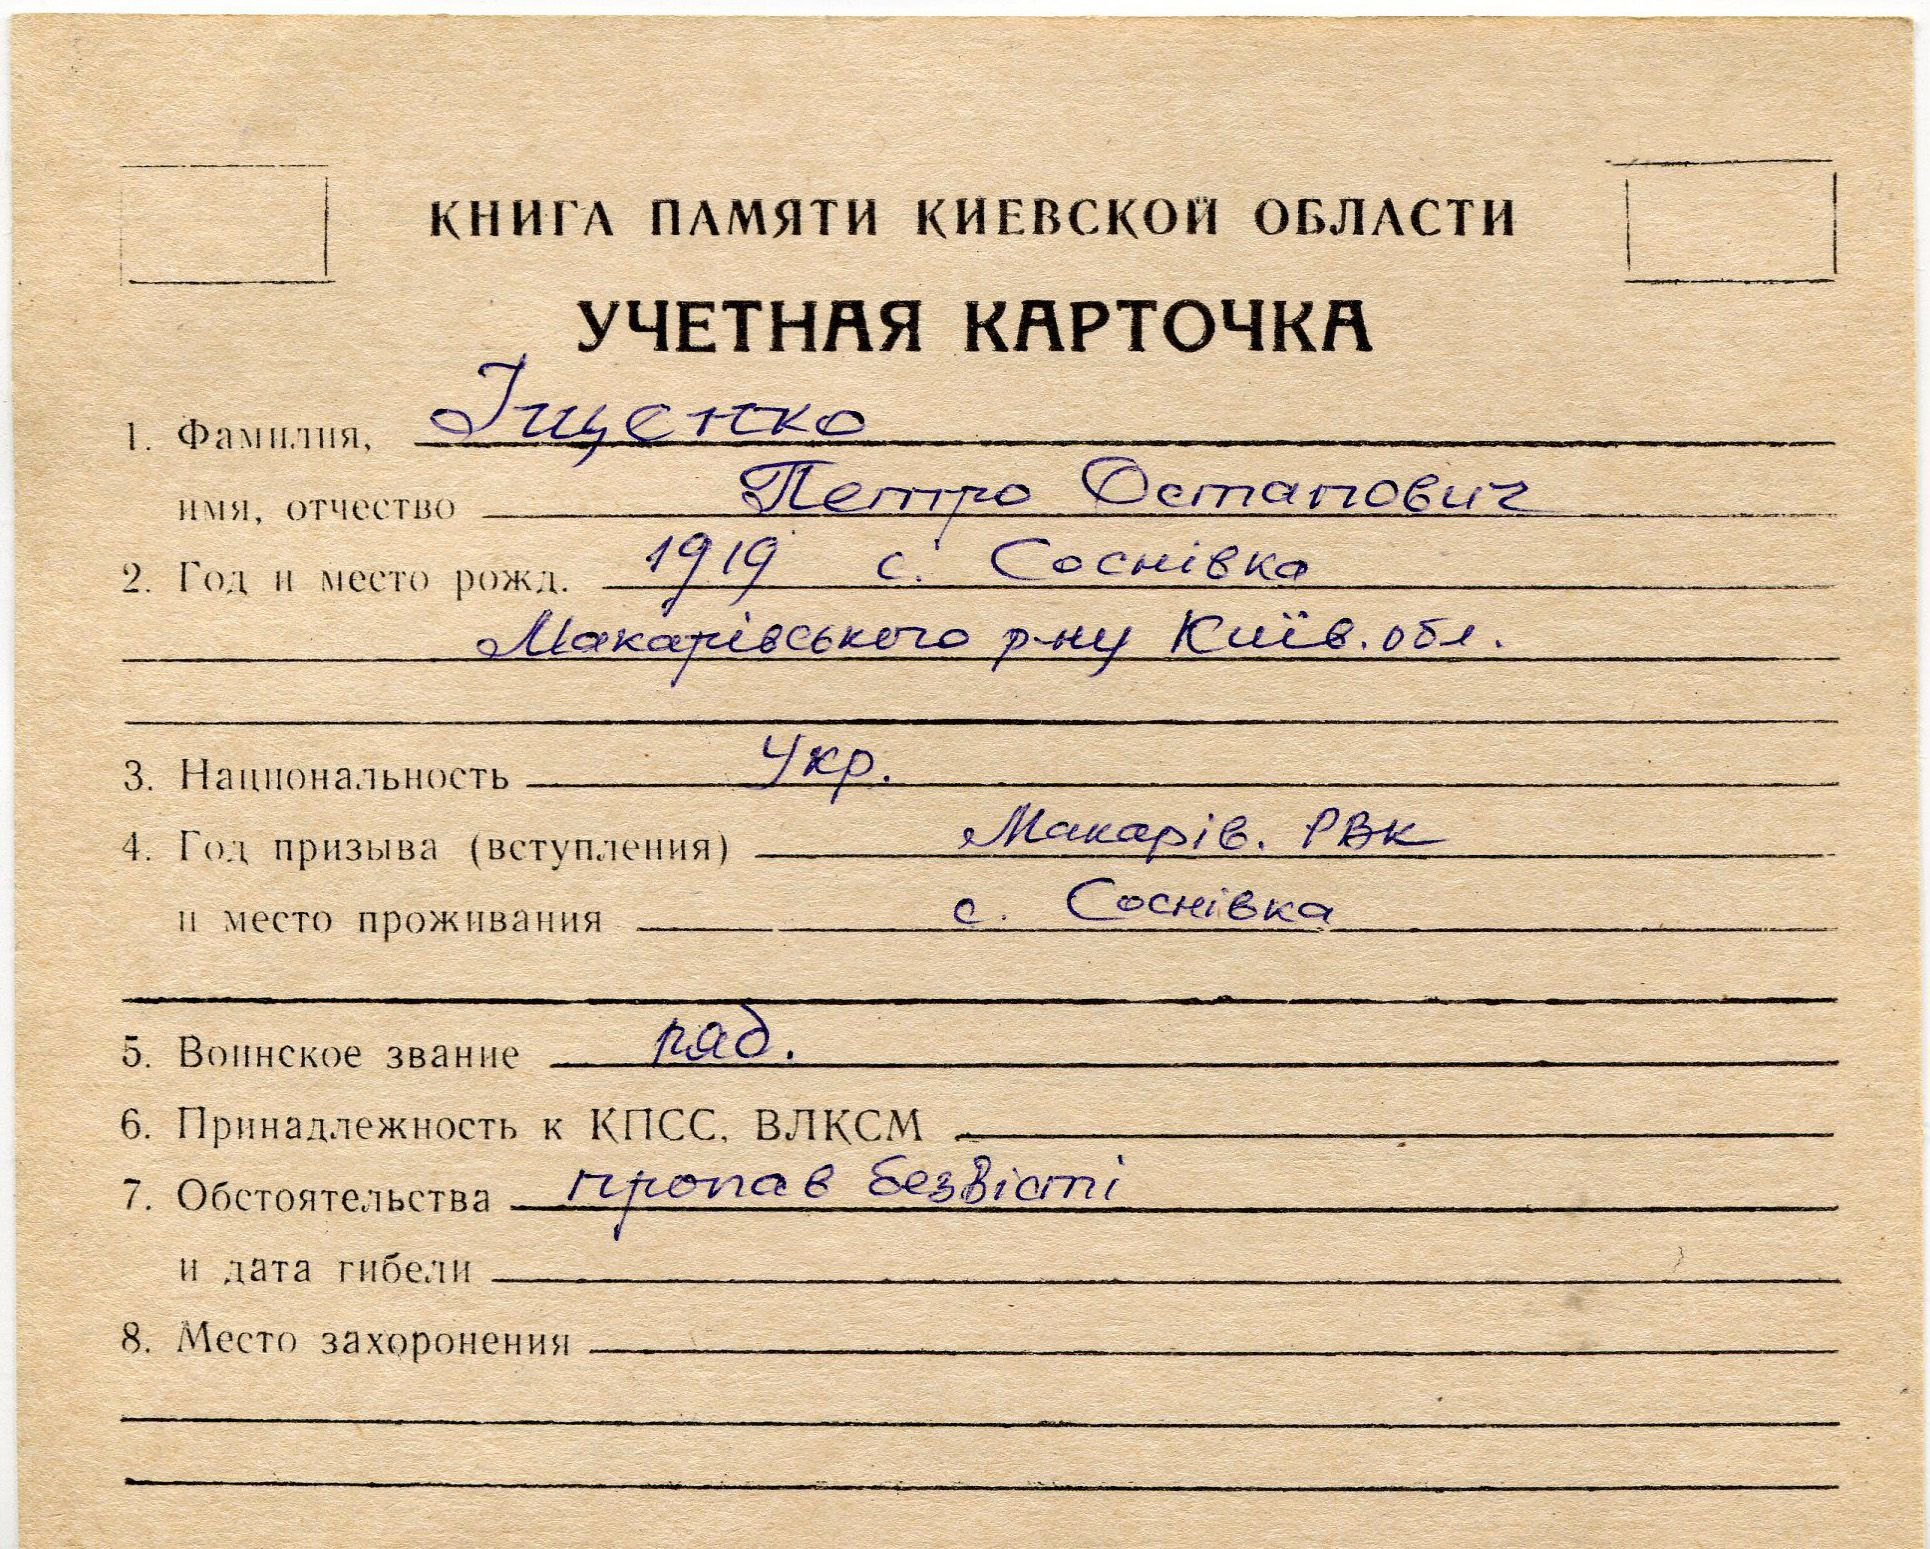 КНИГА ПАМЯТИ КИЕВСКОЙ ОБЛАСТИ
УЧЕТНАЯ КАРТОЧКА
1. Фамилия, Іщенко
имя, отчество Петро Остапович
2. Год и место рожд. 1919 с. Соснівка
Макарівського р-ну Київ. обл.
3. Национальность Укр.
4. Год призыва (вступления) Макарів. РВК
и место проживания с. Соснівка
5. Воинское звание ряд.
6. Принадлежность к КПСС, ВЛКСМ
7. Обстоятельства пропав безвісті
и дата гибели
8. Место захоронения